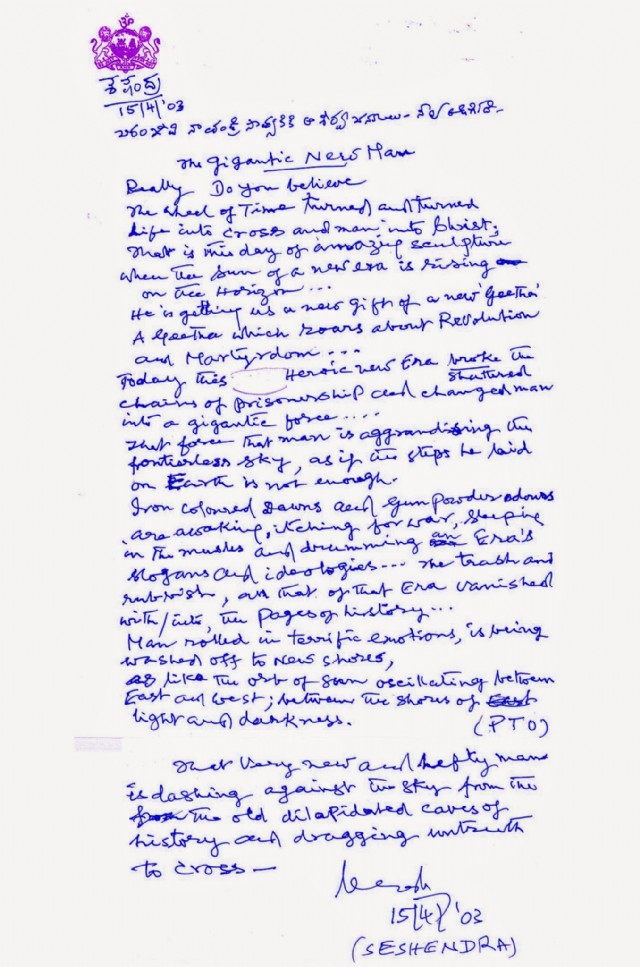 శేషేంద్ర
15/4/'03
The Gigantic New Man
Really Do you believe
The wheel of Time turned and turned
Life into cross and man into Christ;
That is the day of amazing sculpture
when the sun of a new era is rising
on the Horizon...
He is getting us a new gift of a new 'Geetha'
A Geetha which roars about Revolution
and Martyrdom...
Today this Heroic new Era broke the shattered
chains of prisonership and changed man
into a gigantic force....
That force that man is aggrandising the
fontierless sky, as if the steps he laid
on Earth is not enough.
Iron coloured Dawns and Gun powder odours
are awaking, itching for war, sleeping
in the muscles and drumming an Era's
slogans and ideologies--- The trash and
rubbish, all that of that Era vanished
with/into, the pages of history...
Man rolled in terrific emotions, is being
washed off to New shores,
like the orb of Sun oscillating between
East and West; between the shores of
light and darkness. (PTO)
That very new and hefty man
is dashing against the sky from the
the old dilapidated caves of
history and dragging untruth
to cross —
15/4/'03
(SESHENDRA)